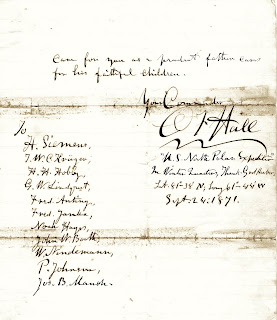 Care for you as a prudent father cares
for his faithful children.
Your Commander
C. F. Hall
U.S. North Polar Expedition
In Winter Quarters, Thank God Harbor
Lat. 81° 38' N, Long 61° 44' W
Sept 24. 1871.
To
H. Siemens,
J. W. C. Kruger,
H. H. Hobby,
G. W. Lindquist,
Fred. Anting,
Fred. Jamka,
Noah Hays,
John W Booth,
W. Nindemann,
P. Johnson,
Jos. B. Mauch.